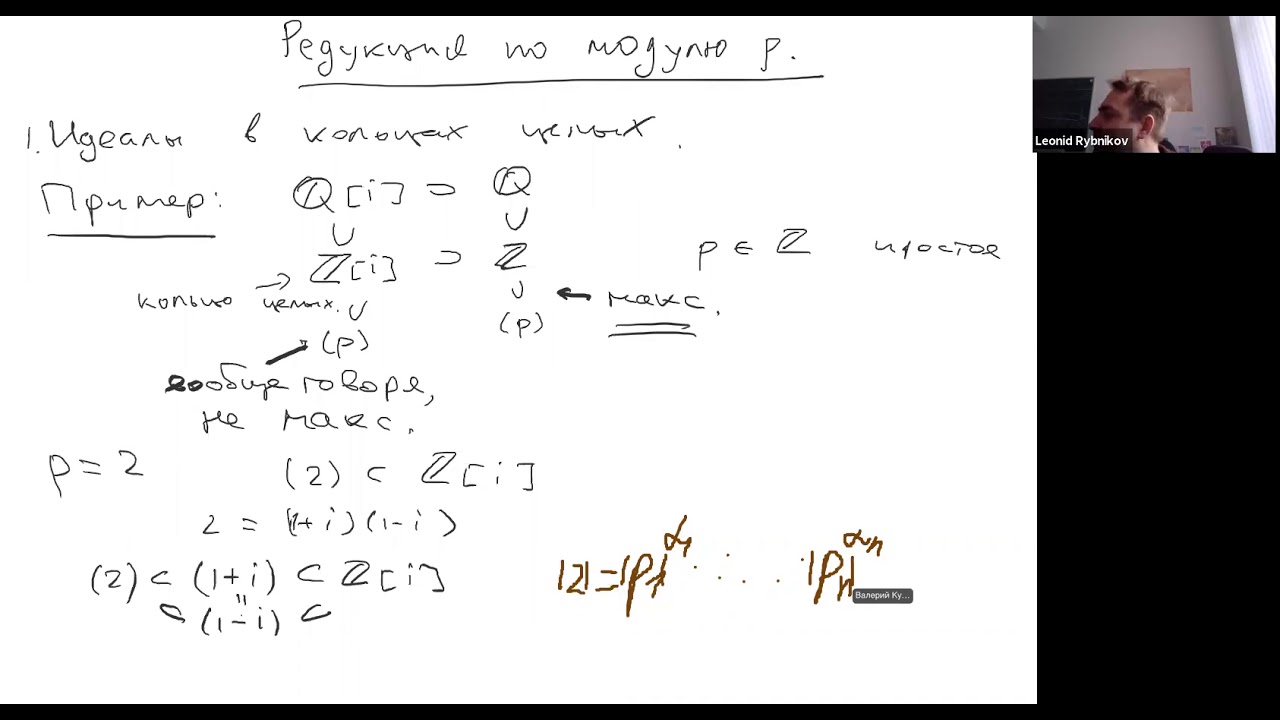 Редукция по модулю p.
1. Идеалы в кольцах целых.
Пример: ℚ[i] ⊃ ℚ
∪ ∪
ℤ[i] ⊃ ℤ p ∈ ℤ простое
кольцо целых. → ∪ ∪ ← макс.
(p) (p)
вообще говоря,
не макс.
p = 2 (2) ⊂ ℤ[i]
2 = (1+i)(1-i)
(2) ⊂ (1+i) ⊂ ℤ[i]
"
⊂ (1-i) ⊂
|2| = |P₁|^α₁ ..... |Pₙ|^αₙ
Валерий Ку...
Leonid Rybnikov